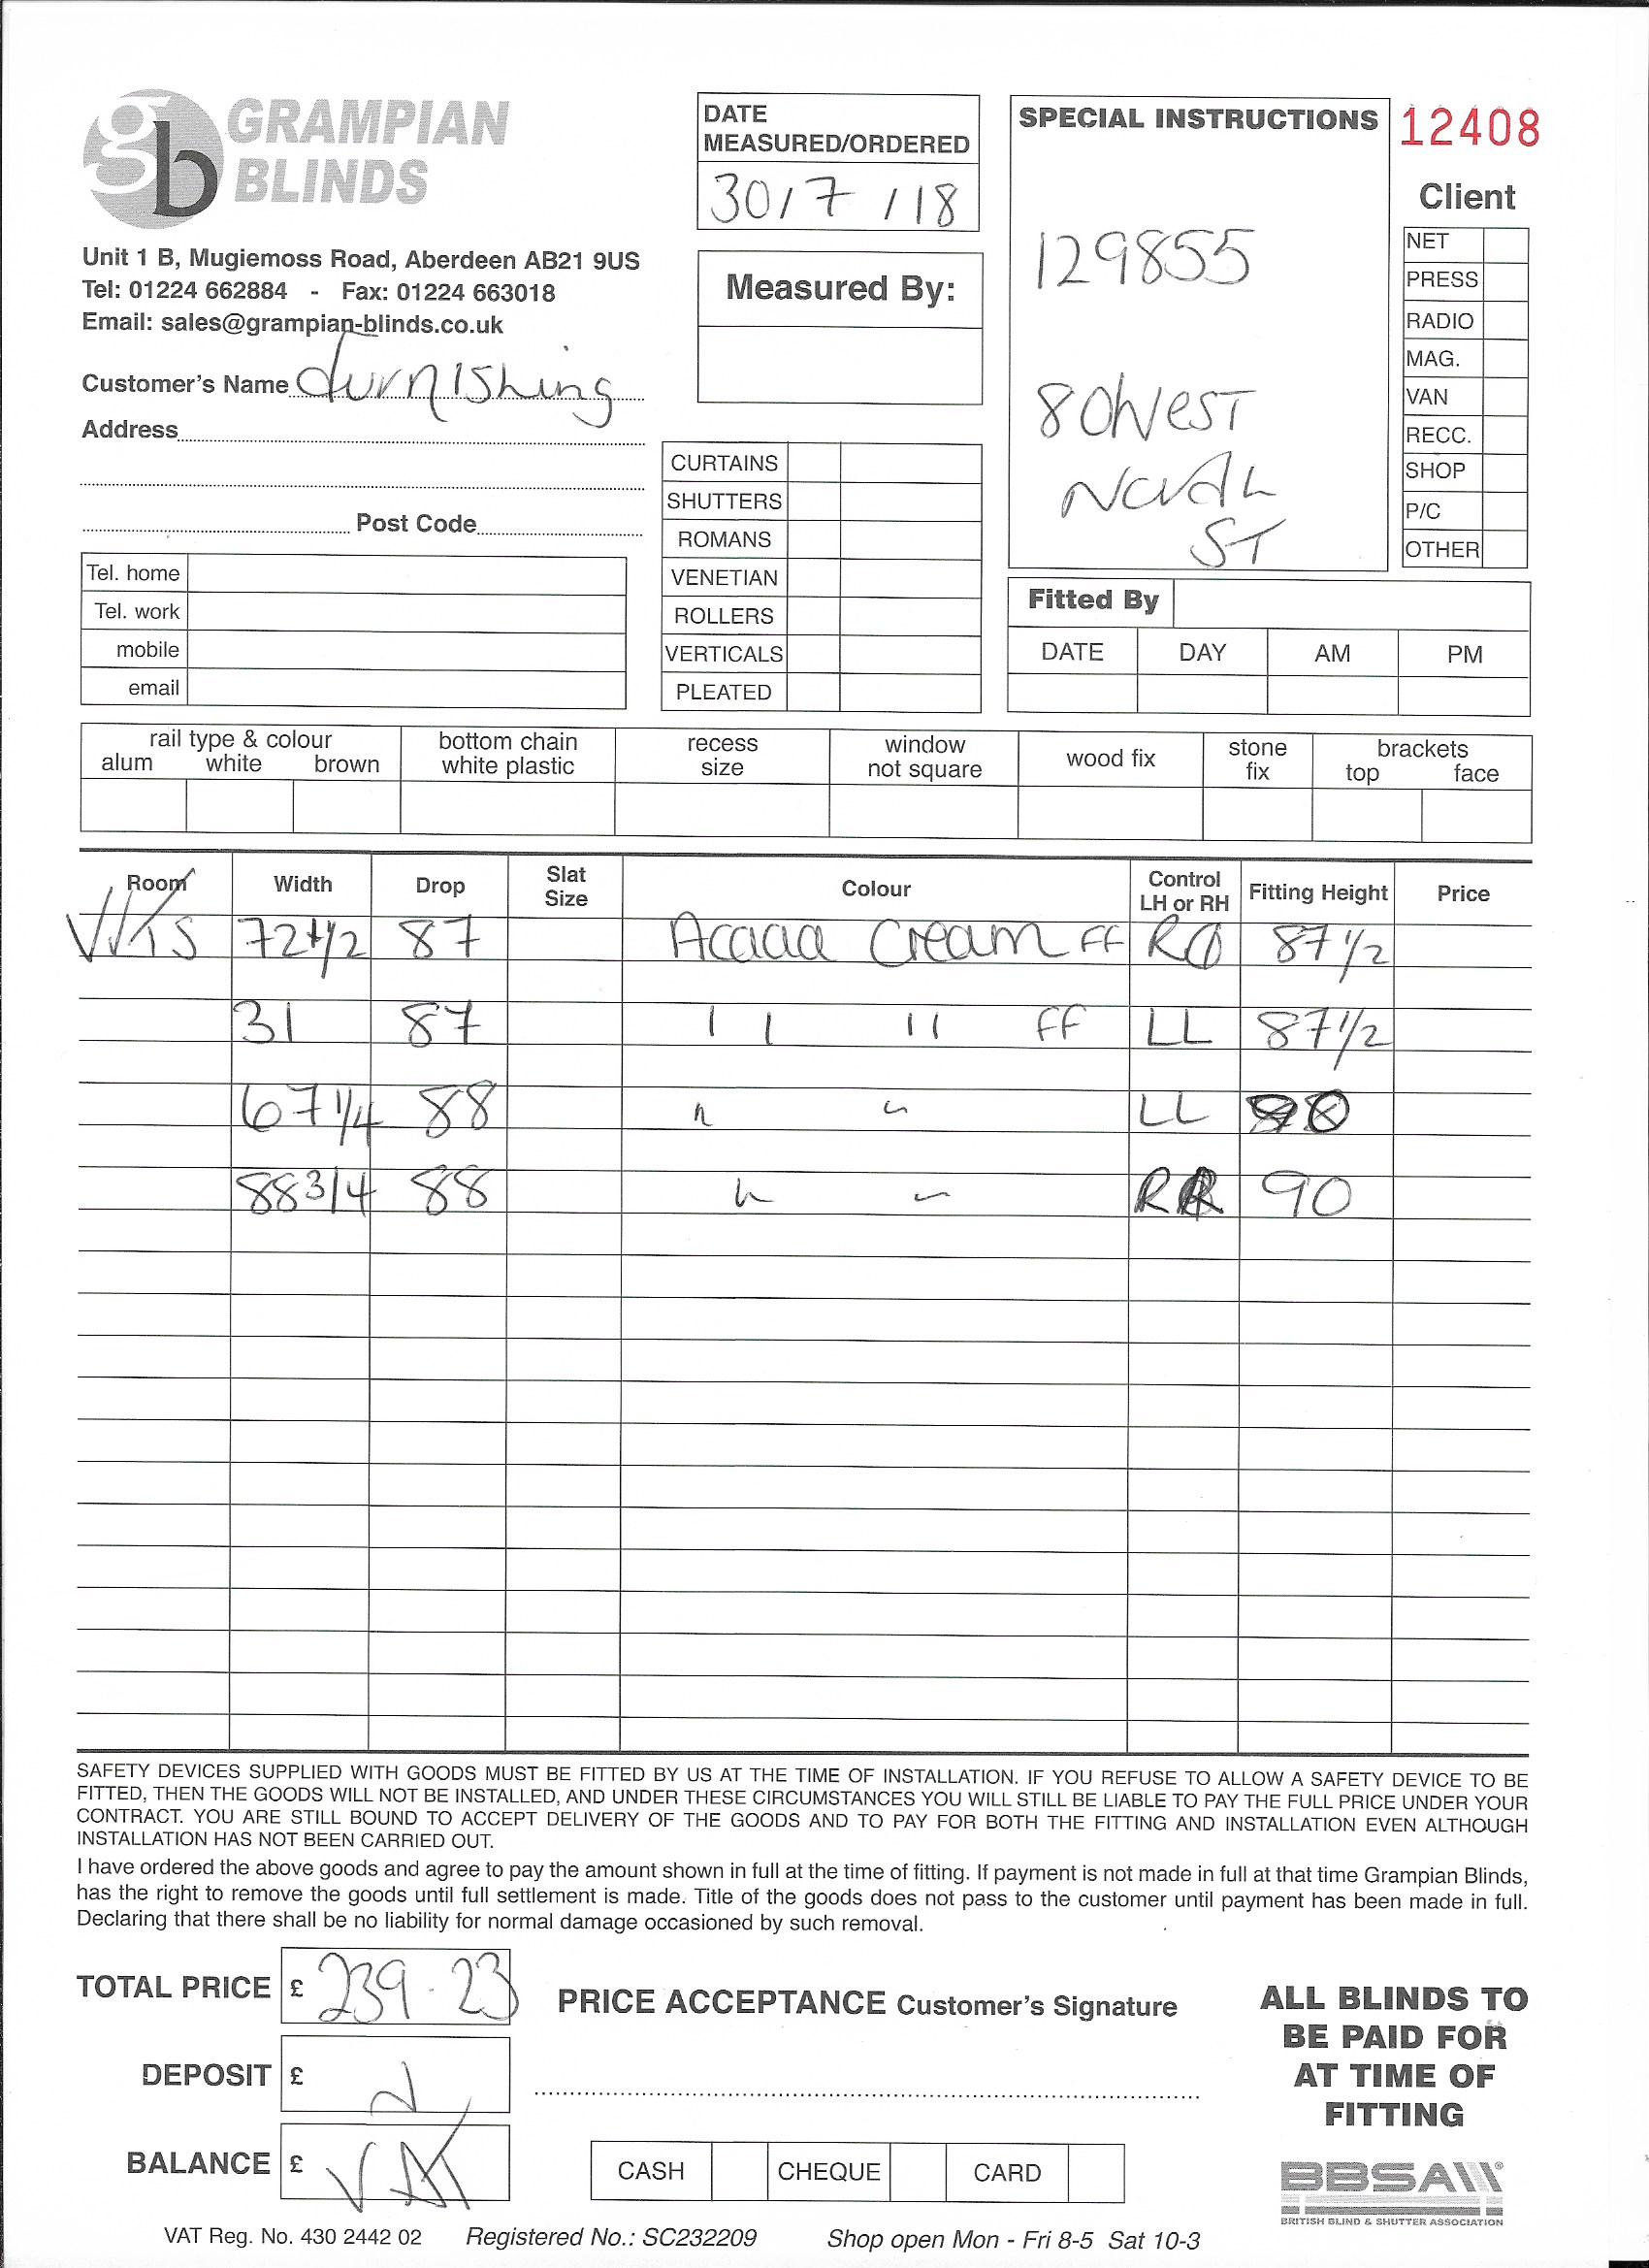 gb GRAMPIAN
BLINDS
Unit 1 B, Mugiemoss Road, Aberdeen AB21 9US
Tel: 01224 662884 - Fax: 01224 663018
Email: sales@grampian-blinds.co.uk
Customer's Name furnishing
Address
Post Code
Tel. home
Tel. work
mobile
email
DATE
MEASURED/ORDERED
30/7/18
Measured By:
CURTAINS
SHUTTERS
ROMANS
VENETIAN
ROLLERS
VERTICALS
PLEATED
SPECIAL INSTRUCTIONS
129855
80 West
North
ST
12408
Client
NET
PRESS
RADIO
MAG.
VAN
RECC.
SHOP
P/C
OTHER
Fitted By
DATE DAY AM PM
rail type & colour
alum white brown
bottom chain
white plastic
recess
size
window
not square
wood fix
stone
fix
brackets
top face
Room Width Drop Slat Size Colour Control LH or RH Fitting Height Price
72 1/2 87 Acacia Cream FF 87 1/2
31 87 " " FF LL 87 1/2
67 1/4 88 " " LL
88 3/4 88 " " RR 90
SAFETY DEVICES SUPPLIED WITH GOODS MUST BE FITTED BY US AT THE TIME OF INSTALLATION. IF YOU REFUSE TO ALLOW A SAFETY DEVICE TO BE
FITTED, THEN THE GOODS WILL NOT BE INSTALLED, AND UNDER THESE CIRCUMSTANCES YOU WILL STILL BE LIABLE TO PAY THE FULL PRICE UNDER YOUR
CONTRACT. YOU ARE STILL BOUND TO ACCEPT DELIVERY OF THE GOODS AND TO PAY FOR BOTH THE FITTING AND INSTALLATION EVEN ALTHOUGH
INSTALLATION HAS NOT BEEN CARRIED OUT.
I have ordered the above goods and agree to pay the amount shown in full at the time of fitting. If payment is not made in full at that time Grampian Blinds,
has the right to remove the goods until full settlement is made. Title of the goods does not pass to the customer until payment has been made in full.
Declaring that there shall be no liability for normal damage occasioned by such removal.
TOTAL PRICE £ 239.23
DEPOSIT £
BALANCE £ VAT
PRICE ACCEPTANCE Customer's Signature
CASH CHEQUE CARD
ALL BLINDS TO
BE PAID FOR
AT TIME OF
FITTING
BBSA
BRITISH BLIND & SHUTTER ASSOCIATION
VAT Reg. No. 430 2442 02 Registered No.: SC232209 Shop open Mon - Fri 8-5 Sat 10-3